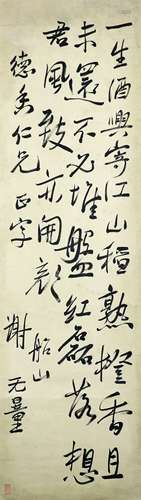 一生酒興寄江山稻熟橙香且
未還不必堆盤紅磊落想
君風致亦開顏 船山
德仁兄正字 謝无量